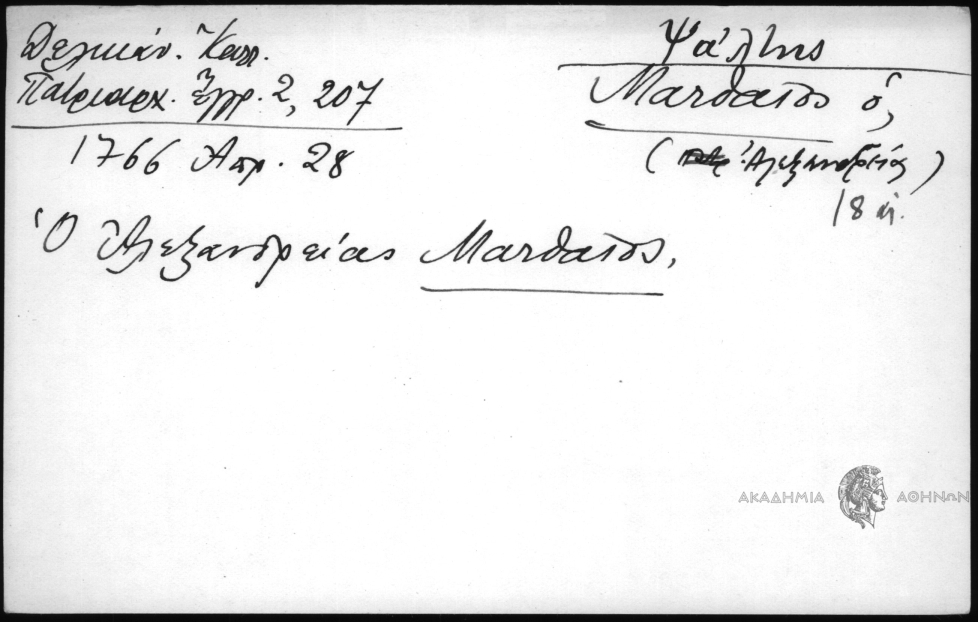 Δελικάν. Καλλ.
Πατριαρχ. Ἔγγρ. 2, 207
1766 Ἀπρ. 28
Ψάλτης
Ματθαῖος ὁ,
(Ἀλεξανδρείας)
18 αἰ.
Ὁ Ἀλεξανδρείας Ματθαῖος,
ΑΚΑΔΗΜΙΑ ΑΘΗΝΩΝ